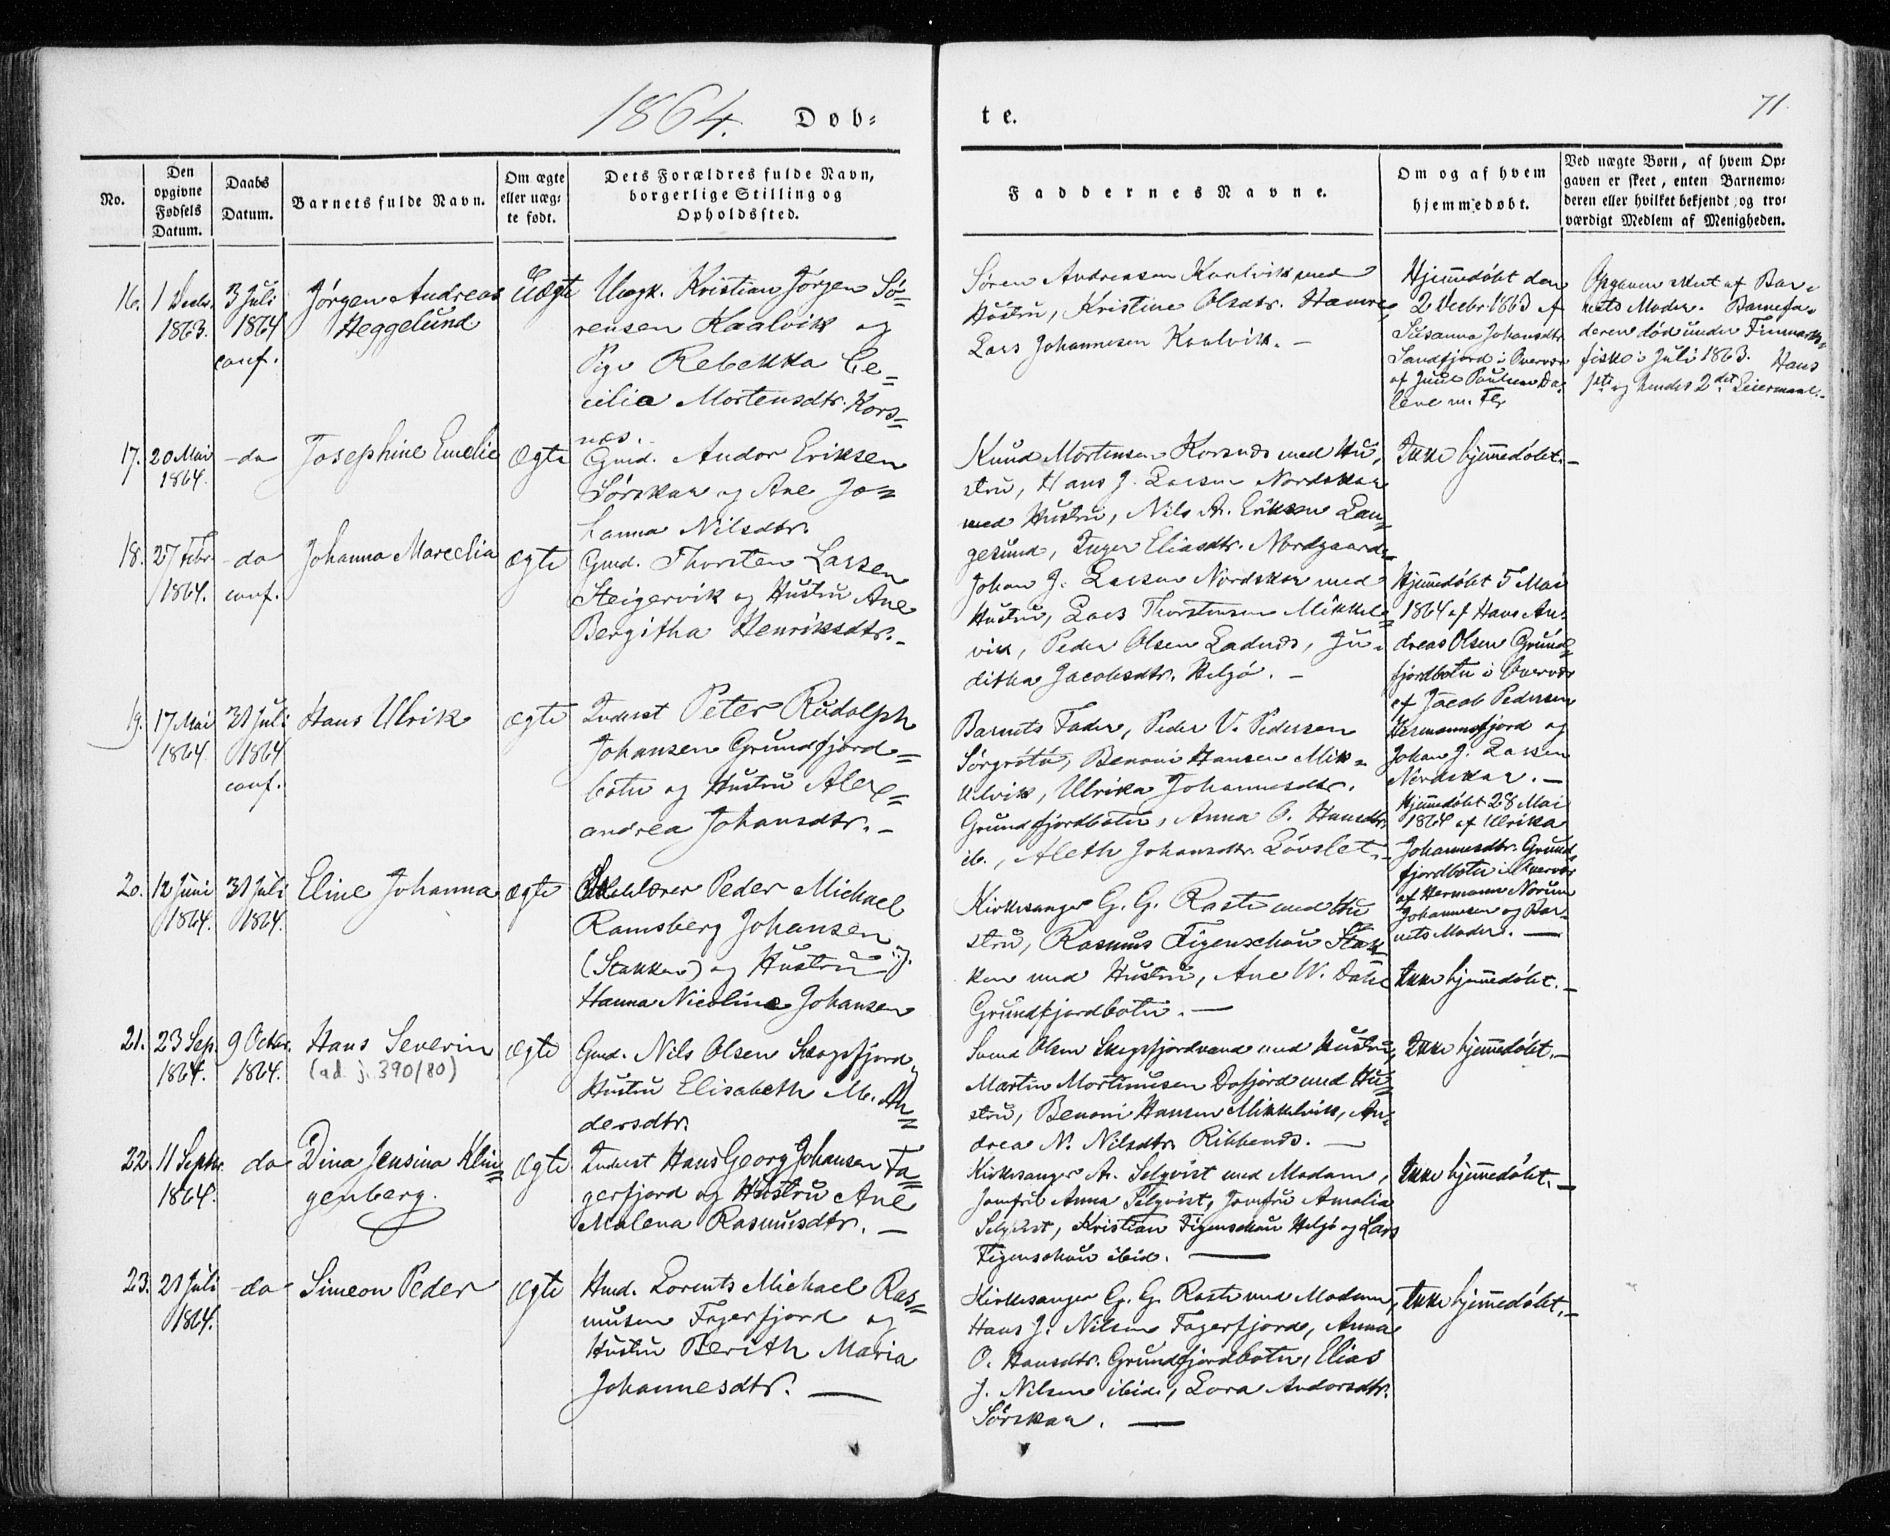 1864. Døb- te. 71
No.
Den opgivne Fødsels Datum.
Daabs Datum.
Barnets fulde Navn.
Om ægte eller uægte født.
Dets Forældres fulde Navn, borgerlige Stilling og Opholdssted.
Faddernes Navne.
Om og af hvem hjemmedøbt.
Ved uægte Børn, af hvem Opgaven er skeet, enten Barnemoderen eller hvilket bekjendt og troværdigt Medlem af Menigheden.
16.
1 Decbr.
1863.
3 Juli
1864
conf.
Jørgen Andreas
Heggelund
Uægte
Ungk. Kristian Jørgen Sø=
rensen Kaalvik og
Pige Rebekka Ce=
cilia Mortensdtr. Kors=
næs.
Søren Andreasen Kaalvik med
Hustru, Kristine Olsdtr. Hamre,
Lars Johannesen Kaalvik. -
Hjemmedøbt den
2 Decbr. 1863 af
Susanna Johansdtr.
Sandfjord i Overvær
af Juul Paulsen Da-
leve m. Fl.
Opgaven skeet af Bar-
nets Moder. Barnefa-
deren død under Finmark-
fiske i Juli 1863. Hans
1ste og hendes 2det Leiermaal.-
17.
20 Mai
1864.
-do
Josephine Emelie
ægte
Gmd. Andor Eriksen
Sørskar og Ane Jo=
hanna Nilsdtr.
Knud Mortensen Korsnæs med Hu-
stru, Hans J. Larsen Nordskar
med Hustru, Nils A. Eriksen Lan=
gesund, Inger Eliasdtr. Nordgaard.
Ikke hjemmedøbt.-
18.
27 Febr
1864.
-do
conf.
Johanna Marcelia
ægte
Gmd. Thorsten Larsen
Steigervik og Hustru Ane
Bergitha Henriksdtr.-
Johan J. Larsen Nordskar med
Hustru, Lars Thorstensen Mikkel=
vik, Peder Olsen Ladnæs, Ju-
ditha Jacobsdtr. Helgø. -
Hjemmedøbt 5 Mai
1864 af Hans An-
dreas Olsen Grund=
fjordbotn i Overvær
af Jacob Pedersen
Hermannsfjord og
Johan J. Larsen
Nordskar. -
19.
17 Mai
1864
31 Juli
1864
conf.
Hans Ulrik
ægte
Inderst Peter Rudolph
Johansen Grundfjord=
botn og Hustru Alex=
andrea Johansdtr. -
Barnets Fader, Peder V. Pedersen
Sørgrøtø, Benoni Hansen Mik-
kelvik, Ulrika Johannesdtr.
Grundfjordbotn, Anna O. Hansdtr.
ib., Aleth Johansdtr. Løvslet.-
Hjemmedøbt 28 Mai
1864 af Ulrika
Johannesdtr. Grund-
fjordbotn i Overvær
af Hermann Norum
Johannesen og Bar-
nets Moder. -
20.
12 Juni
1864.
31 Juli
1864.
Eline Johanna
ægte
Peder Michael
Ramsberg Johansen
(Stakken) og Hustru J.
Hanna Nicoline Johansen
Kirkesanger G. G. Raste med Hu
stru, Rasmus Figenschau Stak
ken med Hustru, Ane W. Dahl
Grundfjordbotn. -
Ikke hjemmedøbt.-
21.
23 Sep.
1864.
9 Octbr.
1864.
Hans Severin
(ad j. 390/80)
ægte
Gmd. Nils Olsen Skogsfjord,
Hustru Elisabeth M. An=
dersdtr.
Svend Olsen Skogsfjordvand med Hustru,
Martin Mortinusen Dafjord med Hu=
stru, Benoni Hansen Mikkelvik, An-
drea N. Nilsdtr. Ribbenæs. -
Ikke hjemmedøbt.-
22.
11 Septbr.
1864.
do
Dina Jensina Klin=
genberg.
ægte
Inderst Hans Georg Johansen Fa=
gerfjord og Hustru Ane
Malena Rasmusdtr. -
Kirkesanger A. Selqvist med Madam,
Jomfru Anna Selqvist, Jomfru Amalia
Selqvist, Kristian Figenschau Helgø og Lars
Figenschau ibid. -
Ikke hjemmedøbt.-
23.
21 Juli
1864.
-do
Simeon Peder
ægte
Hmd. Lorents Michael Ras=
musen Fagerfjord og
Hustru Berith Maria
Johannesdtr. -
Kirkesanger G. G. Raste med Madam,
Hans J. Nilsen Fagerfjord, Anna
O. Hansdtr. Grundfjordbotn, Elias
J. Nilsen ibid., Lora Andorsdtr.
Sørskar. -
Ikke hjemmedøbt.-